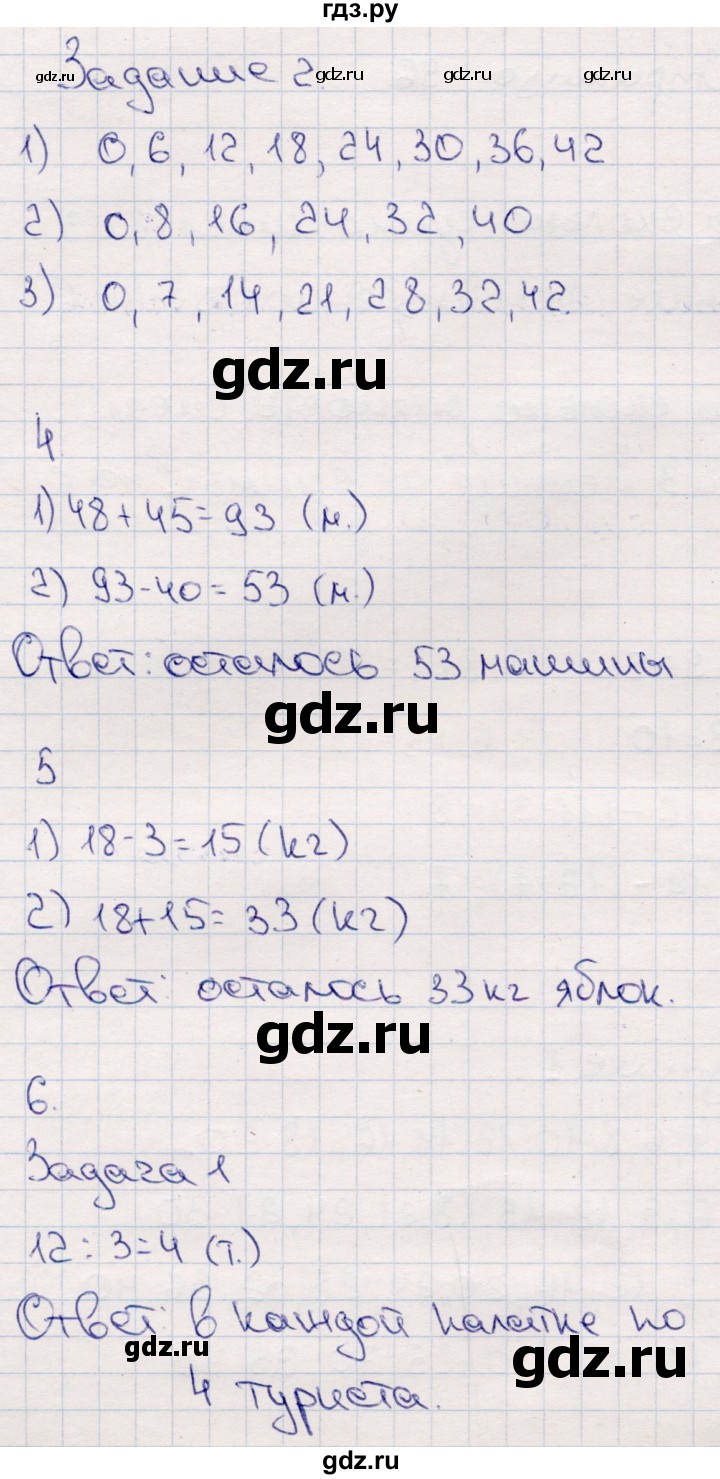 гдз.ру
Задание 2.
gdz.ru gdz.ru gdz.ru gdz.ru
1) 0, 6, 12, 18, 24, 30, 36, 42
2) 0, 8, 16, 24, 32, 40
3) 0, 7, 14, 21, 28, 32, 42.
gdz.ru
4.
1) 48 + 45 = 93 (м.)
2) 93 - 40 = 53 (м.)
Ответ: осталось 53 машины
gdz.ru
5
1) 18 - 3 = 15 (кг)
2) 18 + 15 = 33 (кг)
Ответ: осталось 33 кг яблок.
gdz.ru
6.
Задача 1
12 : 3 = 4 (т.)
Ответ: в каждой палатке по
gdz.ru gdz.ru
4 туриста.
gdz.ru